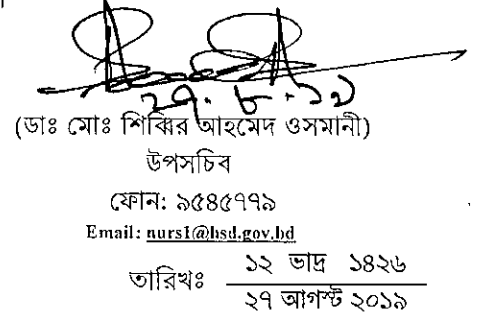 ২৭.৮.১৯
(ডাঃ মোঃ শিব্বির আহমেদ ওসমানী)
উপসচিব
ফোন: ৯৫৪৫৭৭৯
Email: nurs1@hsd.gov.bd
তারিখঃ
১২ ভাদ্র ১৪২৬
২৭ আগস্ট ২০১৯